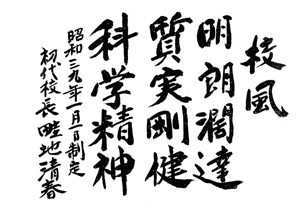 校風
明朗濶達
質実剛健
科学精神
昭和三九年一月一日制定
初代校長畦地清春